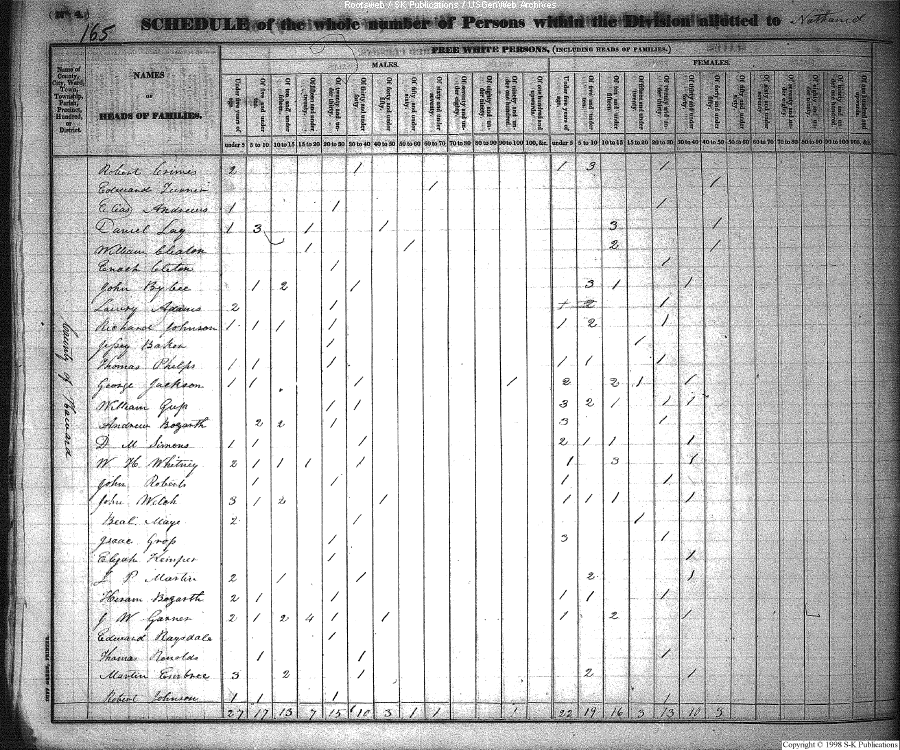 Rootsweb / SK Publications / USGenWeb Archives
(No 4.)
165
SCHEDULE of the whole number of Persons within the Division allotted to Nathaniel
FREE WHITE PERSONS, (INCLUDING HEADS OF FAMILIES.)
MALES. FEMALES.
Name of County, City, Ward, Town, Township, Parish, Precinct, Hundred, or District.
NAMES
OF
HEADS OF FAMILIES.
under 5 5 to 10 10 to 15 15 to 20 20 to 30 30 to 40 40 to 50 50 to 60 60 to 70 70 to 80 80 to 90 90 to 100 100, &c. under 5 5 to 10 10 to 15 15 to 20 20 to 30 30 to 40 40 to 50 50 to 60 60 to 70 70 to 80 80 to 90 90 to 100 100, &c.
County of Howard
Robert Grimes 2 1 1 3 1
Edmund Turner 1 1
Elias Andrews 1 1 1
Daniel Lay 1 3 1 1 3 1
William Cleaton 1 1 2 1
Enoch Cleton 1 1
John Bybee 1 2 1 3 1 1
Lawry Adams 2 1 1 2 1
Richard Johnson 1 1 1 1 1 2 1
Jessy Baker 1 1
Thomas Phelps 1 1 1 1 1 1
George Jackson 1 1 1 1 2 2 1 1
William Gross 1 1 3 2 1 1 1
Andrew Bozarth 2 2 1 3 1
D M Simons 1 1 1 2 1 1 1
W. H. Whitney 2 1 1 1 1 1 3 1
John Roberts 1 1 1 1
John Welch 3 1 2 1 1 1 1 1
Beal Mays 2 1 1
Isaac Gross 1 3 1
Elijah Kemper 1 1
J P Martin 2 1 1 2 1
Hiram Bozarth 2 1 1 1 1 1
J W Garner 2 1 2 4 1 1 1 2 1
Edward Ragsdale 1
Thomas Ronolds 1 1 1
Martin Embree 3 2 1 2 1
Robert Johnson 1 1 1 1
27 17 13 7 15 10 3 1 1 1 22 19 16 3 13 10 3
Copyright © 1998 S-K Publications